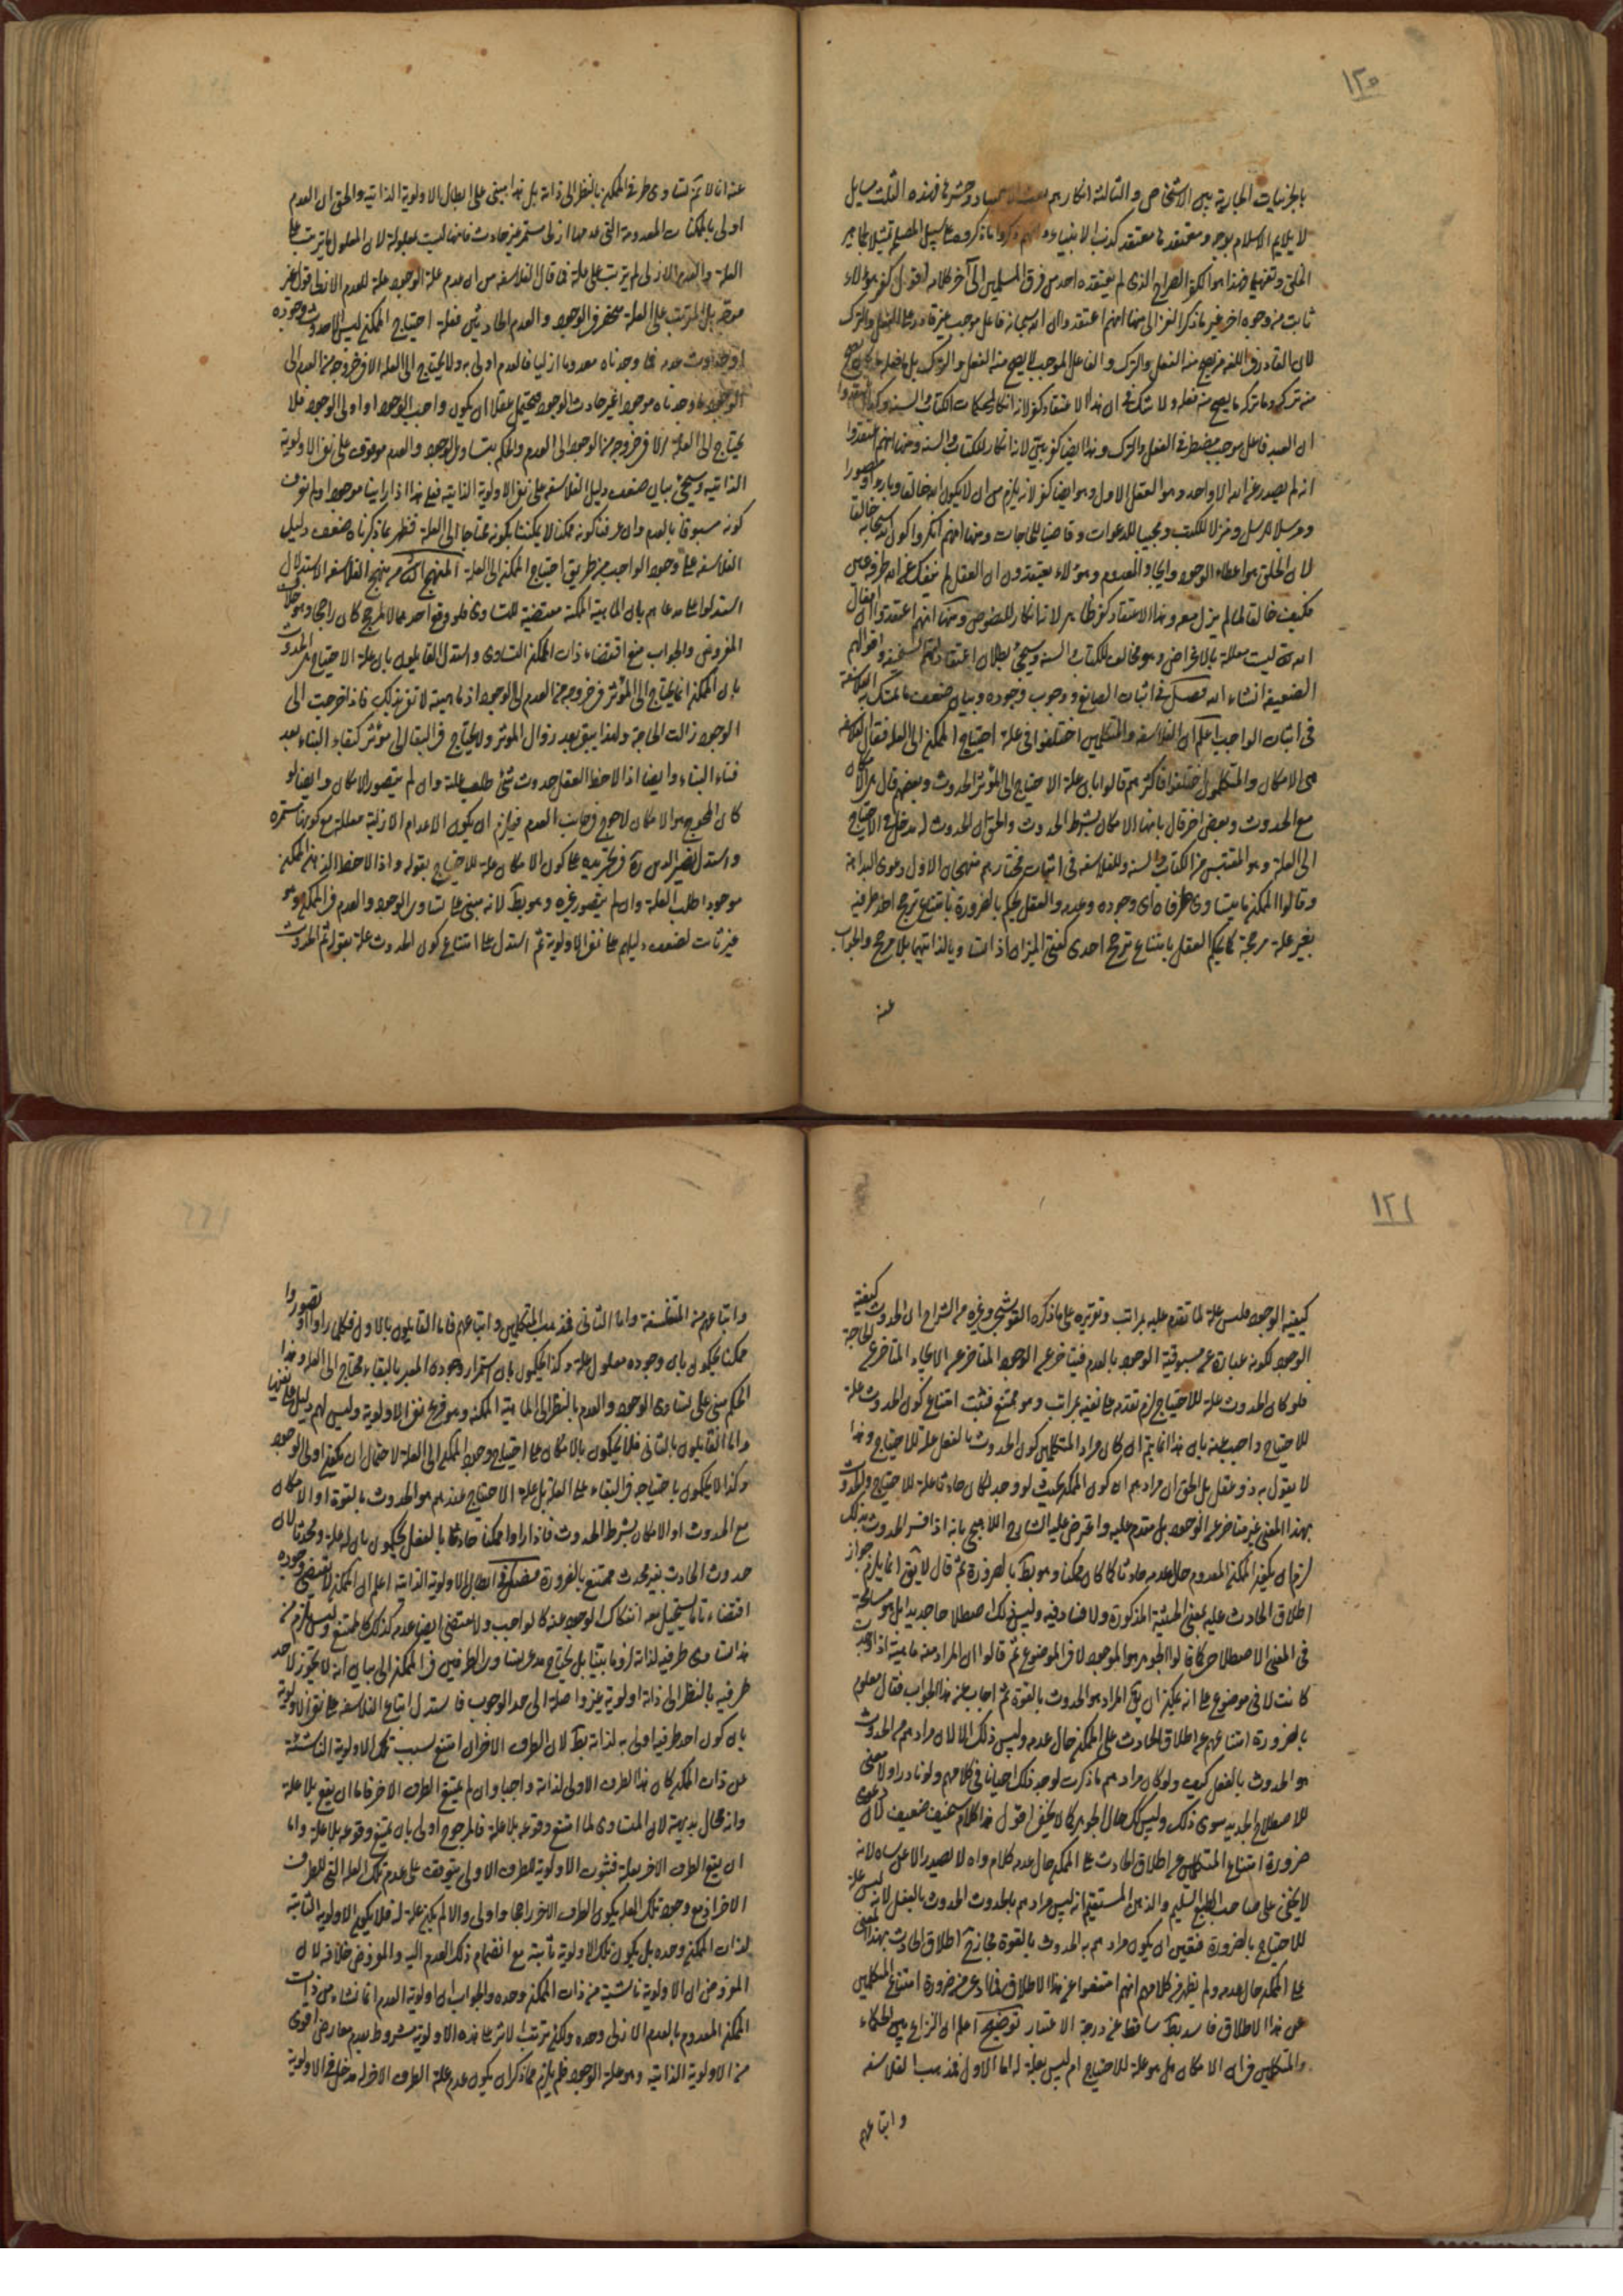 ١٢٠
بالجزئيات الجارية بين الاشخاص والثالثة انكارهم بعث الاجساد وحشرها فهذه الثلث مسايل
لا يلايم الاسلام بوجه ومعتقدها معتقد كذب الانبياء وانهم ذكروا ما ذكروه على سبيل المصلحة تمثيلا لجماهير
الخلق وتفهيما وهذا هو الكفر الصراح الذى لم يعتقده احد من فرق المسلمين الى آخر كلامه اقول كفر هؤلاء
ثابت من وجوه اخر غير ما ذكر الغزالى منها انهم اعتقدوا ان الله سبحانه فاعل موجب غير قادر على الفعل والترك
لان القادر فى اللغة من يصح منه الفعل والترك والفاعل الموجب لا يصح منه الفعل والترك بل ما فعله لا يصح
منه تركه وما تركه ما يصح منه فعله ولا شك فى ان هذا الاعتقاد كفر لانه انكار لمحكمات الكتاب والسنة وكذا اعتقدوا
ان العبد فاعل موجب مضطر فى الفعل والترك وهذا ايضا كفر بين لانه انكار للكتاب والسنة ومنها انهم اعتقدوا
انه لم يصدر عن الله الا واحد وهو العقل الاول وهو ايضا كفر لانه يلزم من ان لا يكون الله خالقا وبارئا ومصورا
ومرسلا للرسل ومنزلا للكتب ومجيبا للدعوات وقاضيا للحاجات ومنها انهم انكروا كون الله سبحانه خالقا
لان الخلق هو اعطاء الوجود وايجاد المعدوم وهؤلاء يعتقدون ان العقل لم ينفك عن الله طرفة عين
فكيف خالقا لما لم يزل معه وهذا الاعتقاد كفر ظاهر لانه انكار للنصوص ومنها انهم اعتقدوا ان افعال
الله تعالى ليست معللة بالاغراض وهو مخالف للكتاب والسنة وسيجئ بطلان اعتقاداتهم السخيفة واقوالهم
الضعيفة انشاء الله فصل فى اثبات الصانع ووجوب وجوده وبيان ضعف ما تمسك به الفلاسفة
فى اثبات الواجب اعلم ان الفلاسفة والمتكلمين اختلفوا فى علة احتياج الممكن الى العلة فقال الفلاسفة
هى الامكان والمتكلمون اختلفوا فاكثرهم قالوا بان علة الاحتياج الى المؤثر الحدوث وبعضهم قال هى الامكان
مع الحدوث وبعض اخر قال بانها الامكان بشرط الحدوث والحق ان الحدوث له مدخل فى الاحتياج
الى العلة وهو المقتبس من الكتاب والسنة وللفلاسفة فى اثبات مختارهم منهجان الاول دعوى البداهة
وقالوا الممكن ما يتساوى طرفاه اى وجوده وعدمه والعقل يحكم بالضرورة بامتناع ترجح احد طرفيه
بغير علة مرجحة كما يحكم العقل بامتناع ترجح احدى كفتى الميزان اذا تساويا لذاتيهما بلا مرجح والجواب
عنه
عنه انا لا نم تساوى طرفى الممكن بالنظر الى ذاته بل هذا مبنى على ابطال الاولوية الذاتية والحق ان العدم
اولى بالممكنات المعدومة التى عدمها ازلى مستمر غير حادث فانها ليست بمعلولة لان المعلول ما يترتب على
العلة والعدم الازلى لم يترتب على علة فما قال الفلاسفة من ان عدم علة الوجود علة للعدم الازلى قول غير
موجه بل المرتب على العلة منحصر فى الوجود والعدم الحادثين فعلة احتياج الممكن ليس الا حدوث وجوده
او حدوث عدمه فما وجدناه معدوما ازليا فالعدم اولى به ولا يحتاج الى العلة الا فى خروجه من العدم الى
الوجود وما وجدناه موجودا غير حادث الوجود فيحتمل عقلا ان يكون واجب الوجود او اولى الوجود فلا
يحتاج الى العلة الا فى خروجه من الوجود الى العدم والحكم بتساوى الوجود والعدم موقوف على نفى الاولوية
الذاتية وسيجئ بيان ضعف دليل الفلاسفة على نفى الاولوية الذاتية فعلى هذا اذا راينا موجودا ولم نعرف
كونه مسبوقا بالعدم وان عرفنا كونه ممكنا لا يمكننا الحكم بكونه محتاجا الى العلة فظهر بما ذكرناه ضعف دليل
الفلاسفة على وجود الواجب من طريق احتياج الممكن الى العلة المنهج الثانى من منهج الفلاسفة الاستدلال
استدلوا على مدعاهم بان الماهية الممكنة مقتضية للتساوى فلو وقع احدهما لا لمرجح كان راجحا وهو خلاف
المفروض والجواب منع اقتضاء ذات الممكن التساوى واستدل القايلون بان علة الاحتياج هى الحدوث
بان الممكن انما يحتاج الى المؤثر فى خروجه من العدم الى الوجود اذ ماهيته لا تفى بذلك فاذا خرجت الى
الوجود زالت الحاجة ولهذا يبقى بعد زوال المؤثر ولا يحتاج فى البقاء الى مؤثر كبقاء البناء بعد
فناء البناء وايضا اذا لاحظ العقل حدوث شئ طلب علته وان لم يتصور الامكان وايضا لو
كان المحوج هو الامكان لاحوج فى جانب العدم فيلزم ان يكون الاعدام الازلية معللة مع كونها مستمرة
واستدل نصير الدين ره فى تجريده على كون الامكان علة للاحتياج بقوله واذا لاحظ الذهن الممكن
موجودا طلب العلة وان لم يتصور غيره وهو بط لانه مبنى على تساوى الوجود والعدم فى الممكن وهو
غير ثابت لضعف دليلهم على نفى الاولوية ثم استدل على امتناع كون الحدوث علة بقوله ثم الحدوث
١٢١
كيفية الوجود فليس علة لما تقدم عليه بمراتب وتقريره على ما ذكره القوشجى وغيره من الشراح ان الحدوث كيفية
الوجود لكونه عبارة عن مسبوقية الوجود بالعدم فيتاخر عن الوجود المتاخر عن الايجاد المتاخر عن الحاجة
فلو كان الحدوث علة للاحتياج لزم تقدمه على نفسه بمراتب وهو ممتنع فثبت امتناع كون الحدوث علة
للاحتياج واجيب عنه بان هذا انما يتم ان كان مراد المتكلمين كون الحدوث بالفعل علة للاحتياج وهذا
لا يقول به ذو عقل بل الحق ان مرادهم ان كون الممكن بحيث لو وجد لكان حادثا علة للاحتياج والحدوث
بهذا المعنى غير متاخر عن الوجود بل متقدم عليه واعترض عليه الشارح اللاهيجى بانه اذا فسر الحدوث بذلك
لزم ان يكون الممكن المعدوم حال عدمه حادثا كما كان ممكنا وهو بط بالضرورة ثم قال لا يق انما يلزم جواز
اطلاق الحادث عليه بمعنى الحيثية المذكورة ولا فساد فيه وليس ذلك اصطلاحا جديدا بل هو مسامحة
فى المعنى الاصطلاحى كما قالوا الجوهر هو الموجود لا فى الموضوع ثم قالوا ان المراد منه ماهية اذا وجدت
كانت لا فى موضوع على انه يمكن ان يق المراد هو الحدوث بالقوة ثم اجاب عنه هذا الجواب فقال معلوم
بالضرورة امتناعهم عن اطلاق الحادث على الممكن حال عدمه وليس ذلك الا لان مرادهم من الحدوث
هو الحدوث بالفعل كيف ولو كان مرادهم ما ذكرت لوجد ذلك احيانا فى كلامهم ولو نادرا ولا معنى
للاصطلاح الجديد سوى ذلك وليس كك حال الجوهر كما لا يخفى اقول هذا كلام سخيف ضعيف لان دعوى
ضرورة امتناع المتكلمين عن اطلاق الحادث على الممكن حال عدمه كلام واه لا يصدر الا عن ساه لانه
لا يخفى على صاحب الطبع السليم والذهن المستقيم انه ليس مرادهم بالحدوث الحدوث بالفعل لانه ليس علة
للاحتياج بالضرورة فتعين ان يكون مرادهم به الحدوث بالقوة فجاز ح اطلاق الحادث بهذا المعنى
على الممكن حال عدمه ولم يظهر من كلامهم انهم امتنعوا عن هذا الاطلاق فما ادعى من ضرورة امتناع المتكلمين
عن هذا الاطلاق فاسد بط ساقط عن درجة الاعتبار توضيح اعلم ان النزاع بين الحكماء
والمتكلمين فى ان الامكان هل هو علة للاحتياج ام ليس بعلة له اما الاول فمذهب الفلاسفة
واتباعهم
واتباعهم من المتفلسفة واما الثانى فمذهب المتكلمين واتباعهم فاما القايلون بالاول فكلما راوا او تصوروا
ممكنا يحكمون بان وجوده معلول علة وكذا يحكمون بان استمرار وجوده المعبر بالبقاء محتاج الى العلة وهذا
الحكم مبنى على تساوى الوجود والعدم بالنظر الى الماهية الممكنة وهو فرع نفى الاولوية وليس لهم دليل على نفيها
واما القايلون بالثانى فلا يحكمون بالامكان على احتياج وجود الممكن الى العلة لاحتمال ان يكون اولى الوجود
وكذا لا يحكمون باحتياجه فى البقاء على العلة بل علة الاحتياج عندهم هو الحدوث بالقوة او الامكان
مع الحدوث او الامكان بشرط الحدوث فاذا راوا ممكنا حادثا بالفعل يحكمون بان له علة ومحدثا لان
حدوث الحادث بغير محدث ممتنع بالضرورة فصل فى ابطال الاولوية الذاتية اعلم ان الممكن لا يقتضى وجوده
اقتضاء تاما يستحيل معه انفكاك الوجود عنه كالواجب ولا مقتضى ايضا عدمه كذلك كالممتنع وليس يلزم من
هذا تساوى طرفيه لذاته لزوما بينا بل يحتاج مدعى تساوى الطرفين فى الممكن الى بيان انه لا يجوز لاحد
طرفيه بالنظر الى ذاته اولوية غير واصلة الى حد الوجوب فاستدل اتباع الفلاسفة على نفى الاولوية
بان كون احد طرفيه اولى به لذاته بط لان الطرف الاخر ان امتنع بسبب تلك الاولوية الناشئة
عن ذات الممكن كان هذا الطرف الاولى لذاته واجبا وان لم يمتنع الطرف الاخر فاما ان يقع بلا علة
وانه محال بديهة لان المتساوى لما امتنع وقوعه بلا علة فالمرجوح اولى بان يمتنع وقوعه بلا علة واما
ان يقع الطرف الاخر بعلة فثبوت الاولوية للطرف الاولى يتوقف على عدم تلك العلة التى للطرف
الاخر اذ مع وجود تلك العلة يكون الطرف الاخر راجحا واولى والا لم يكن علة له فلا يكون الاولوية الثابتة
لذات الممكن وحده بل يكون تلك الاولوية ثابتة مع انضمام ذلك العدم اليه والمفروض خلافه لان
المفروض ان الاولوية ناشئة من ذات الممكن وحده والجواب ان اولوية العدم انما نشاء من ذات
الممكن المعدوم بالعدم الازلى وحده ولكن ترتب الاثر على هذه الاولوية مشروط بعدم معارض اقوى
من الاولوية الذاتية وهو علة الوجود فلم يلزم مما ذكر ان يكون عدم علة الطرف الاخر له مدخل فى الاولوية